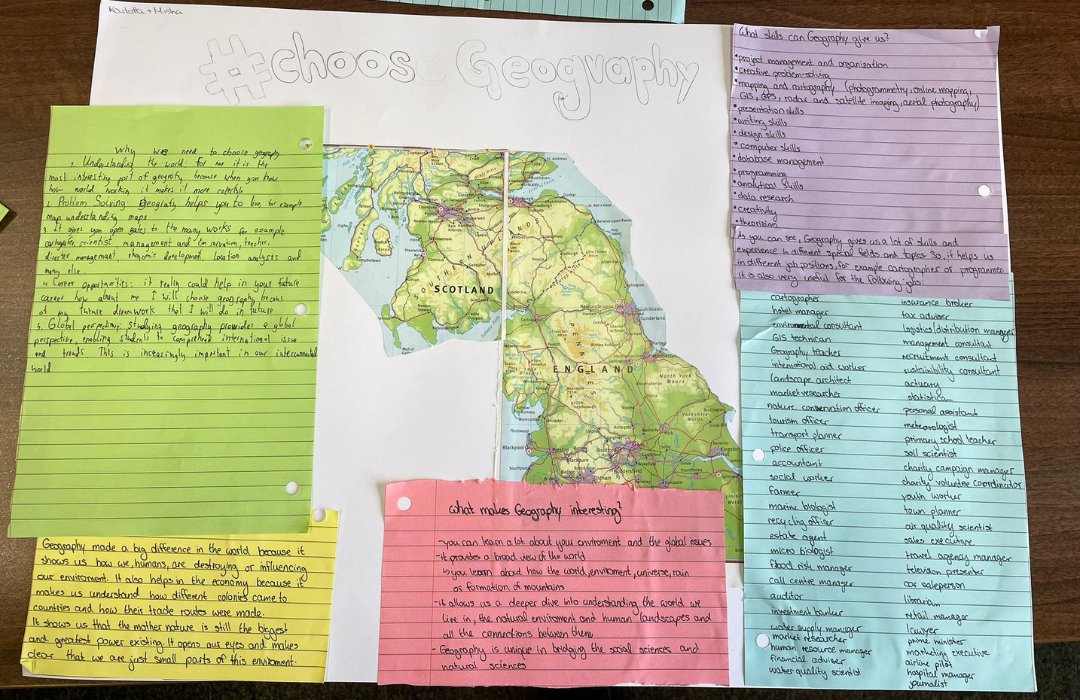 Karlotta + Misha
#choos Geography
Why we need to choose geography
1. Understanding the world: for me it is the
most interesting part of geography because when you know
how world working it makes it more
2. Problem Solving Geography helps you to live, for example
map understanding maps
3. it gives you open gates to the many works for example
cartographer, scientist management and conservation, teacher,
disaster management economic development, location analysts and
many else
4. Career opportunities: it really could help in your future
career how about me I will choose geography because
of my future dreamwork that I will do in future
5. Global perspective: studying geography provides a global
perspective, enabling students to comprehend international issue
and trends This is increasingly important in our interconnected
world
Geography made a big difference in the world because it
shows us how we, humans, are destroying or influencing
our enviroment. It also helps in the economy because it
makes us understand how different colonies came to
countries and how their trade routes were made.
It shows us that the mother nature is still the biggest
and greatest power existing. It opens our eyes and makes
clear that we are just small parts of this enviroment.
SCOTLAND
ENGLAND
North York
Moors
Sunderland
Blackpool
Blackburn
Southport
What makes Geography interesting?
-you can learn a lot about your enviroment and the global issues
-it provides a broad view of the world
↳you learn about how the world, enviroment, universe, rain
or formation of mountains
-it allows us a deeper dive into understanding the world we
live in, the natural enviroment and human landscapes and
all the connections between them
- Geography is unique in bridging the social sciences and
natural sciences
What skills can Geography give us?
•project management and organization
•creative problem-solving
•mapping and cartography (photogrammetry, online mapping,
GIS, GPS, radar and satellite imaging, aerial photography)
•presentation skills
•writing skills
•design skills
•computer skills
•database management
•programming
•analytical skills
•data research
•creativity
•theorizing
As you can see, Geography gives us a lot of skills and
experience in different special fields and topics. So, it helps us
in different job positions, for example cartographer of programmer.
It is also very useful for the following jobs:
cartographer
hotel manager
enviromental consultant
GIS technican
Geography teacher
international aid worker
landscape architect
market researcher
nature conservation officer
tourism officer
transport planner
police officer
accountant
social worker
farmer
marine biologist
recycling officer
estate agent
micro biologist
flood risk manager
call centre manager
auditor
investment banker
water supply manager
market researcher
human resource manager
financial adviser
water quality scientist
insurance broker
tax adviser
logistics/distribution manager
management consultant
recruitment consultant
sustainibility consultant
actuary
personal assistant
meteorologist
primary school teacher
soil scientist
charity campaign manager
charity voluntee coordinator
youth worker
town planner
air quality scientist
sales executive
travel agency manager
television presenter
car salesperson
librarian
retail manager
lawyer
prime minister
marketing executive
airline pilot
hospital manager
journalist